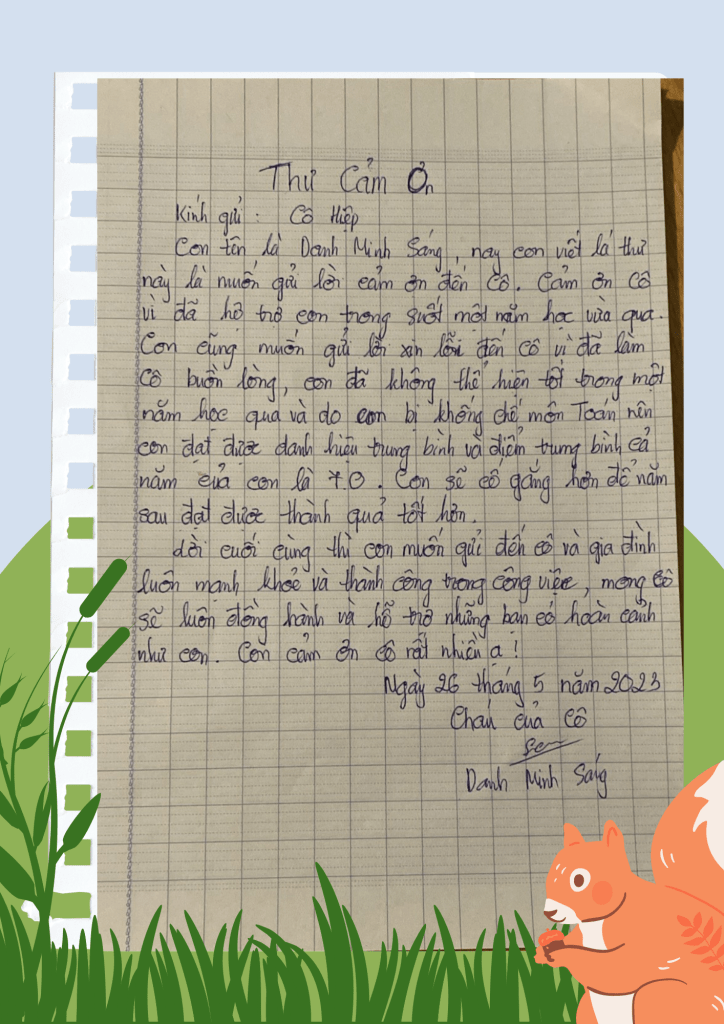 Thư Cảm Ơn
Kính gửi : Cô Hiệp
Con tên là Danh Minh Sáng, nay con viết lá thư
này là muốn gửi lời cảm ơn đến Cô. Cảm ơn Cô
vì đã hỗ trợ con trong suốt một năm học vừa qua.
Con cũng muốn gửi lời xin lỗi đến cô vì đã làm
Cô buồn lòng, con đã không thể hiện tốt trong một
năm học qua và do con bị khống chế môn Toán nên
con đạt được danh hiệu trung bình và điểm trung bình cả
năm của con là 7.0. Con sẽ cố gắng hơn để năm
sau đạt được thành quả tốt hơn.
Lời cuối cùng thì con muốn gửi đến cô và gia đình
luôn mạnh khoẻ và thành công trong công việc, mong Cô
sẽ luôn đồng hành và hỗ trợ những bạn có hoàn cảnh
như con. Con cảm ơn cô rất nhiền ạ !
Ngày 26 tháng 5 năm 2023
Cháu của Cô
Danh Minh Sáng